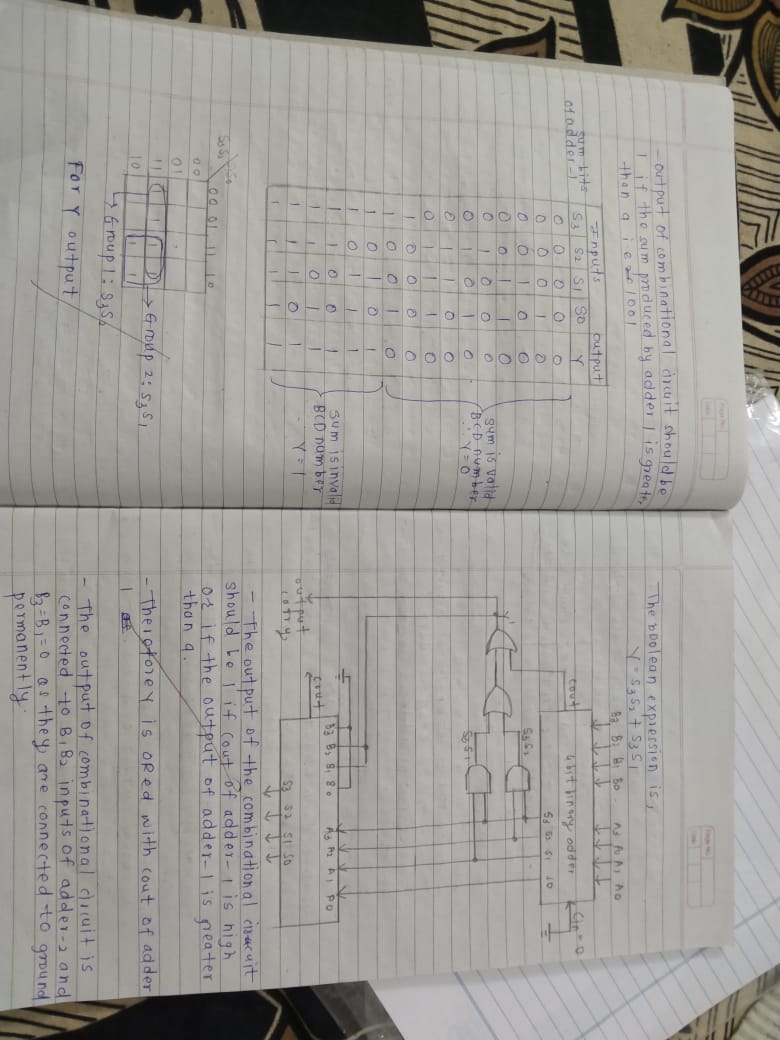 Page No.
Date
- output of combinational circuit should be
1 if the sum produced by adder 1 is greater
than 9 i.e 1001
Inputs output
sum bits
of adder-1
S3 S2 S1 S0 Y
0 0 0 0 0
0 0 0 1 0
0 0 1 0 0
0 0 1 1 0
0 1 0 0 0
0 1 0 1 0
0 1 1 0 0
0 1 1 1 0
1 0 0 0 0
1 0 0 1 0
1 0 1 0 1
1 0 1 1 1
1 1 0 0 1
1 1 0 1 1
1 1 1 0 1
1 1 1 1 1
sum is valid
BCD number
∴ Y = 0
sum is invalid
BCD number
∴ Y = 1
00 01 11 10
00
01
11 1 1 1 1
10 1 1
Group 2: S3S1
Group 1: S3S2
For Y output
Page No.
Date
The boolean expression is,
Y = S3S2 + S3S1
B3 B1 B1 B0 A3 A0 A1 A0
cout 4 bit binary adder Cin = 0
S3 S2 S1 S0
S3S2
Y'
S3S1
B3 B2 B1 B0 A3 A2 A1 A0
cout
output
carry
S3 S2 S1 S0
- The output of the combinational circuit
should be 1 if cout of adder-1 is high
or if the output of adder-1 is greater
than 9.
- Therefore Y is ORed with cout of adder
1
- The output of combinational circuit is
connected to B1B2 inputs of adder-2 and
B3=B1=0 as they are connected to ground
permanently.